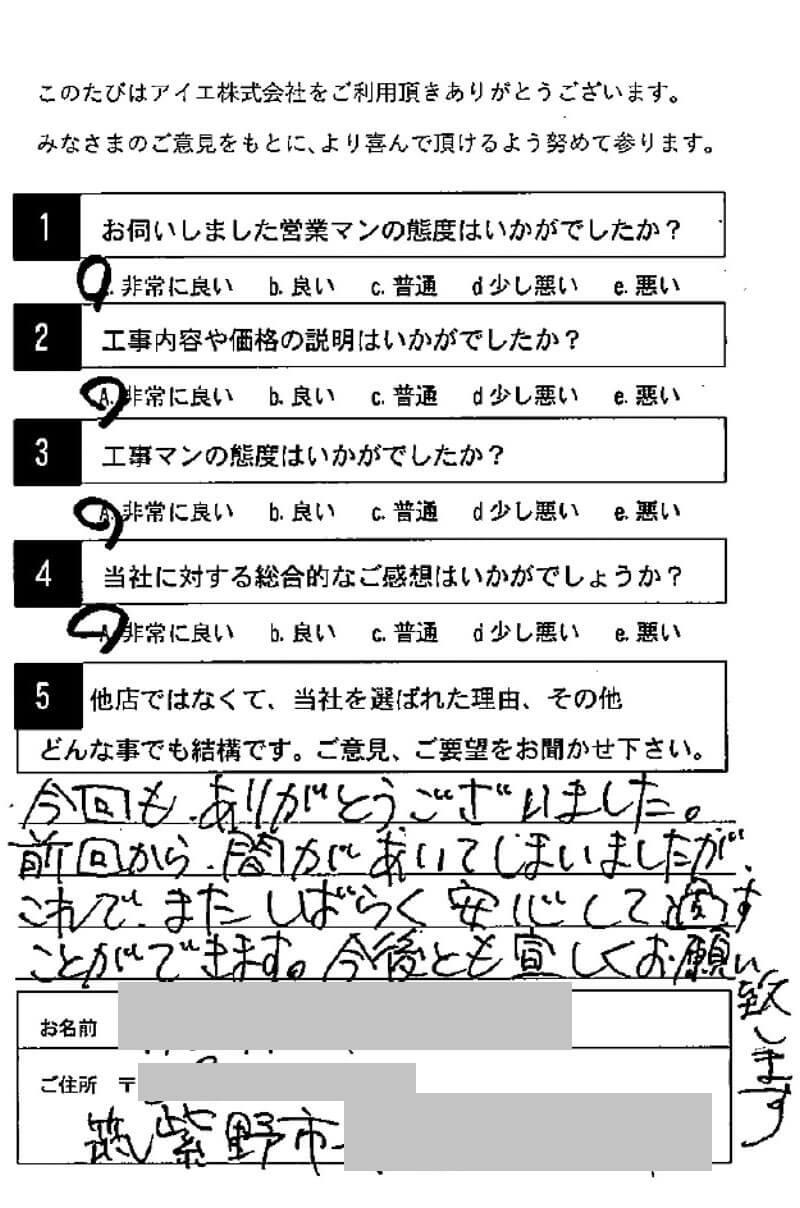 このたびはアイエ株式会社をご利用頂きありがとうございます。
みなさまのご意見をもとに、より喜んで頂けるよう努めて参ります。
1 お伺いしました営業マンの態度はいかがでしたか？
非常に良い b. 良い c. 普通 d 少し悪い e. 悪い
2 工事内容や価格の説明はいかがでしたか？
A. 非常に良い b. 良い c. 普通 d 少し悪い e. 悪い
3 工事マンの態度はいかがでしたか？
A. 非常に良い b. 良い c. 普通 d 少し悪い e. 悪い
4 当社に対する総合的なご感想はいかがでしょうか？
A. 非常に良い b. 良い c. 普通 d 少し悪い e. 悪い
5 他店ではなくて、当社を選ばれた理由、その他
どんな事でも結構です。ご意見、ご要望をお聞かせ下さい。
今回も、ありがとうございました。
前回から、間があいてしまいましたが、
これで、またしばらく安心して過す
ことができます。今後とも宜しくお願い
致します
お名前
ご住所 〒
筑紫野市